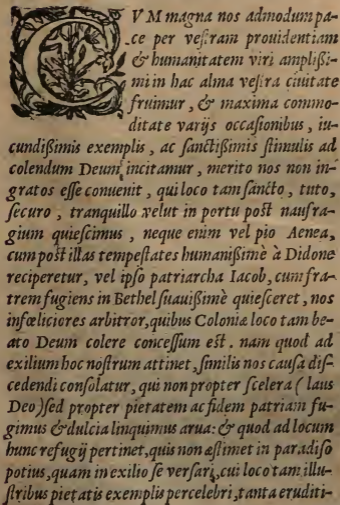 CVM magna nos admodum pa-
ce per veſtram prouidentiam
& humanitatem viri ampliſſi-
mi in hac alma veſtra ciuitate
fruimur, & maxima commo-
ditate varijs occaſionibus, iu-
cundiſſimis exemplis, ac ſanctiſſimis ſtimulis ad
colendum Deum incitamur, merito nos non in-
gratos eſſe conuenit, qui loco tam ſancto, tuto,
ſecuro, tranquillo velut in portu poſt naufra-
gium quieſcimus, neque enim vel pio Aenea,
cum post illas tempeſtates humaniſſimè à Didone
reciperetur, vel ipſo patriarcha Iacob, cum fra-
trem fugiens in Bethel ſuauiſſimè quieſceret, nos
infœliciores arbitror, quibus Coloniæ loco tam be-
ato Deum colere conceſſum eſt. nam quod ad
exilium hoc noſtrum attinet, ſimilis nos cauſa diſ-
cedendi conſolatur, qui non propter ſcelera (laus
Deo) ſed propter pietatem ac fidem patriam fu-
gimus & dulcia linquimus arua: & quod ad locum
hunc refugij pertinet, quis non æſtimet in paradiſo
potius, quam in exilio ſe verſari, cui loco tam illu-
ſtribus pietatis exemplis percelebri, tanta eruditi-